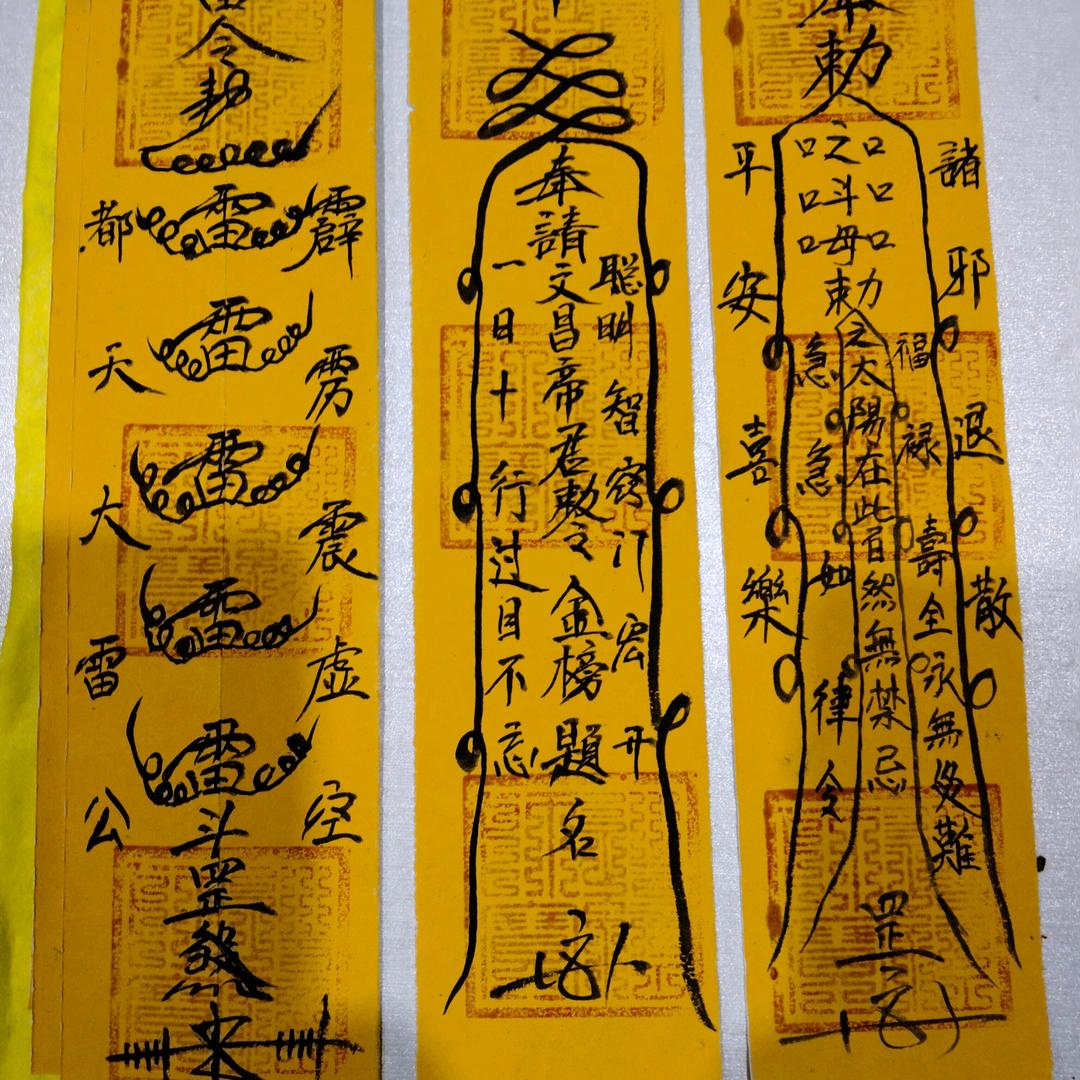 令
勅
雷
雷
雷
雷
雷
斗
罡
煞
都
天
大
雷
公
霹
雳
震
虚
空
奉
請
文
昌
帝
君
敕
令
金
榜
題
名
一
日
十
行
过
目
不
忘
聪
明
智
窍
门
宏
开
勅
口之口
口斗口
口母口
勅
令
太
陽
在
此
百
無
禁
忌
罡
急
急
如
律
令
福
禄
壽
全
永
無
難
平
安
喜
樂
諸
邪
退
散